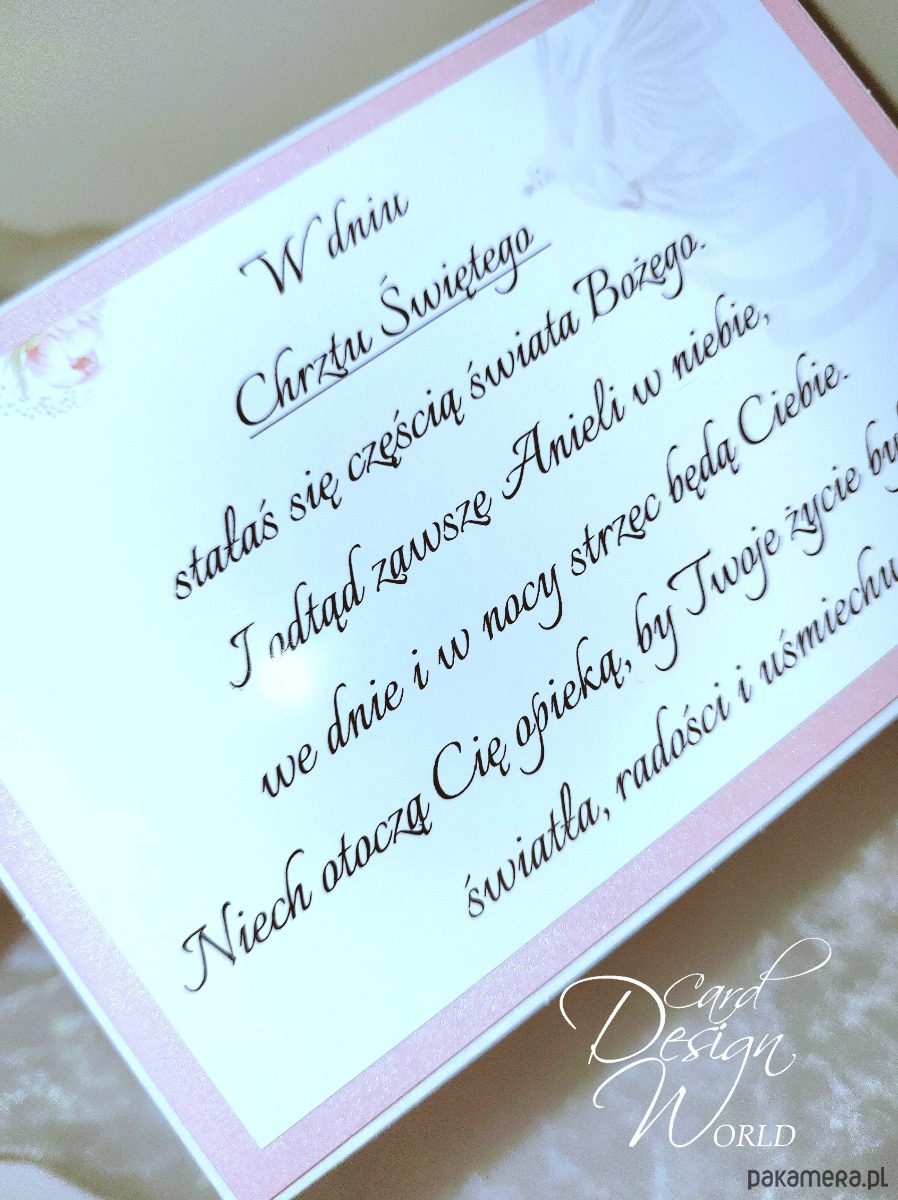 W dniu
Chrztu Świętego
stałaś się częścią świata Bożego.
I odtąd zawsze Anieli w niebie,
we dnie i w nocy strzec będą Ciebie.
Niech otoczą Cię opieką, by Twoje życie
światła, radości i uśmiechu
Card
Design
World
pakamera.pl